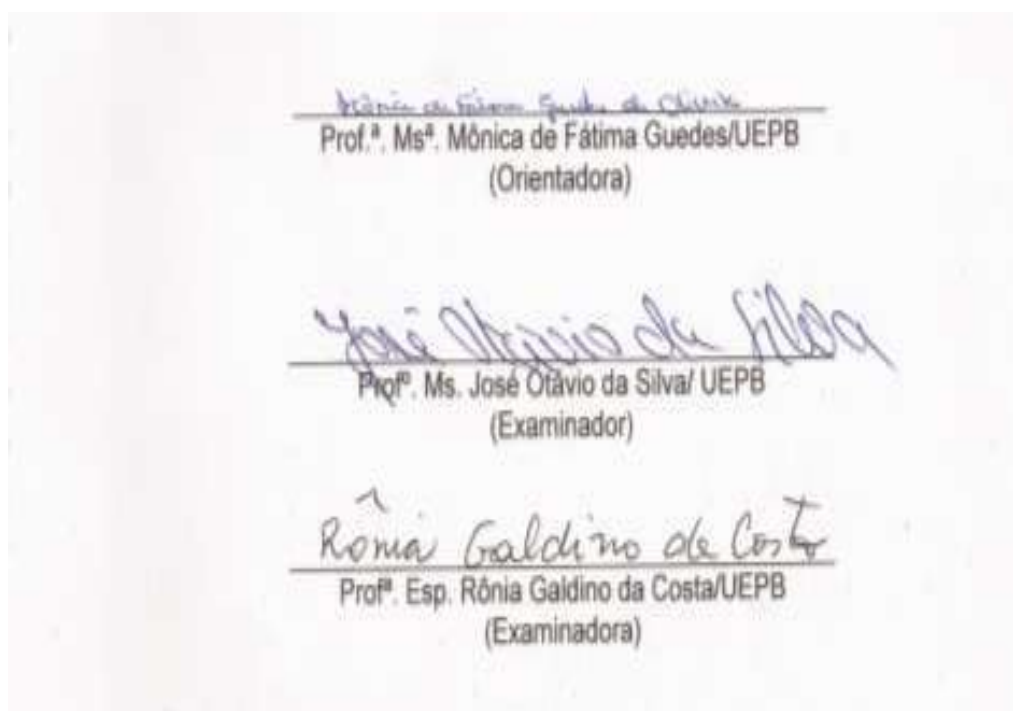 Mônica de Fátima Guedes de Oliveira
Prof.ª. Msª. Mônica de Fátima Guedes/UEPB
(Orientadora)
José Otávio da Silva
Profº. Ms. José Otávio da Silva/ UEPB
(Examinador)
Rônia Galdino da Costa
Profª. Esp. Rônia Galdino da Costa/UEPB
(Examinadora)